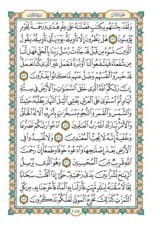 وَلَقَدْ جِئْنَٰهُم بِكِتَٰبٍ فَصَّلْنَٰهُ عَلَىٰ عِلْمٍ هُدًى وَرَحْمَةً لِّقَوْمٍ
يُؤْمِنُونَ ٥٢ هَلْ يَنظُرُونَ إِلَّا تَأْوِيلَهُۥ يَوْمَ يَأْتِي تَأْوِيلُهُۥ يَقُولُ
ٱلَّذِينَ نَسُوهُ مِن قَبْلُ قَدْ جَآءَتْ رُسُلُ رَبِّنَا بِٱلْحَقِّ فَهَل لَّنَا
مِن شُفَعَآءَ فَيَشْفَعُوا۟ لَنَآ أَوْ نُرَدُّ فَنَعْمَلَ غَيْرَ ٱلَّذِي كُنَّا نَعْمَلُ
قَدْ خَسِرُوٓا۟ أَنفُسَهُمْ وَضَلَّ عَنْهُم مَّا كَانُوا۟ يَفْتَرُونَ ٥٣
إِنَّ رَبَّكُمُ ٱللَّهُ ٱلَّذِي خَلَقَ ٱلسَّمَٰوَٰتِ وَٱلْأَرْضَ فِي سِتَّةِ
أَيَّامٍ ثُمَّ ٱسْتَوَىٰ عَلَى ٱلْعَرْشِ يُغْشِي ٱلَّيْلَ ٱلنَّهَارَ يَطْلُبُهُۥ
حَثِيثًا وَٱلشَّمْسَ وَٱلْقَمَرَ وَٱلنُّجُومَ مُسَخَّرَٰتٍۭ بِأَمْرِهِۦٓ أَلَا لَهُ ٱلْخَلْقُ
وَٱلْأَمْرُ تَبَارَكَ ٱللَّهُ رَبُّ ٱلْعَٰلَمِينَ ٥٤ ٱدْعُوا۟ رَبَّكُمْ تَضَرُّعًا
وَخُفْيَةً إِنَّهُۥ لَا يُحِبُّ ٱلْمُعْتَدِينَ ٥٥ وَلَا تُفْسِدُوا۟ فِي
ٱلْأَرْضِ بَعْدَ إِصْلَٰحِهَا وَٱدْعُوهُ خَوْفًا وَطَمَعًا إِنَّ رَحْمَتَ
ٱللَّهِ قَرِيبٌ مِّنَ ٱلْمُحْسِنِينَ ٥٦ وَهُوَ ٱلَّذِي يُرْسِلُ
ٱلرِّيَٰحَ بُشْرًۢا بَيْنَ يَدَيْ رَحْمَتِهِۦ حَتَّىٰٓ إِذَآ أَقَلَّتْ سَحَابًا
ثِقَالًا سُقْنَٰهُ لِبَلَدٍ مَّيِّتٍ فَأَنزَلْنَا بِهِ ٱلْمَآءَ فَأَخْرَجْنَا بِهِۦ مِن كُلِّ
ٱلثَّمَرَٰتِ كَذَٰلِكَ نُخْرِجُ ٱلْمَوْتَىٰ لَعَلَّكُمْ تَذَكَّرُونَ ٥٧
١٥٧